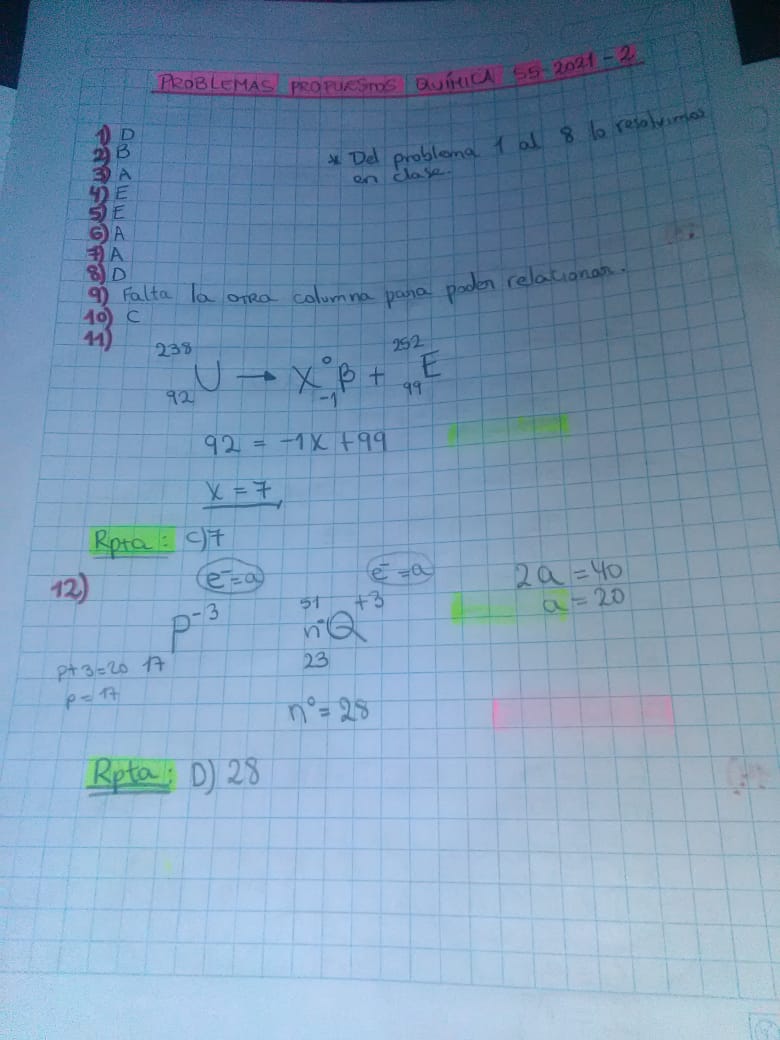 PROBLEMAS PROPUESTOS QUÍMICA S5 2021-2
1) D
2) B
3) A
4) E
5) E
6) A
7) A
8) D
* Del problema 1 al 8 lo resolvimos
en clase.
9) Falta la otra columna para poder relacionar.
10) C
11)
238 92 U → X 0 -1 β + 252 99 E
92 = -1X + 99
X = 7
Rpta: C) 7
12)
e⁻=a e⁻=a 2a = 40
a = 20
P⁻³ 51 n° Q +3
23
p+3=20 17
p = 17
n° = 28
Rpta: D) 28